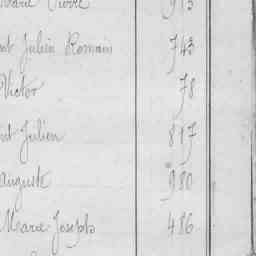 Marie Pierre 913
nt Julien Romain 743
Victor 78
nt Julien 817
Auguste 980
Marie Joseph 486